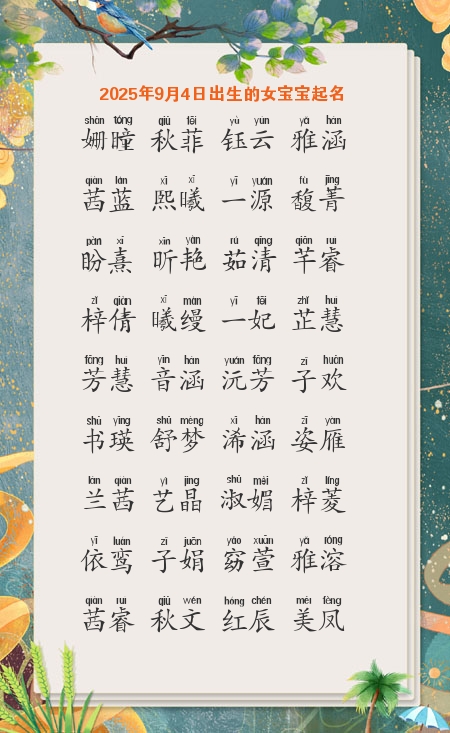 2025年9月4日出生的女宝宝起名
shān tóng qiū fēi yù yún yǎ hán
姗瞳 秋菲 钰云 雅涵
qiàn lán xī xī yī yuán fù jīng
茜蓝 熙曦 一源 馥菁
pàn xī xīn yàn rú qīng qiān ruì
盼熹 昕艳 茹清 芊睿
zǐ qiàn xī màn yī fēi zhǐ huì
梓倩 曦缦 一妃 芷慧
fāng huì yīn hán yuán fāng zǐ huān
芳慧 音涵 沅芳 子欢
shū yīng shū mèng xī hán zī yàn
书瑛 舒梦 浠涵 姿雁
lán qiàn yì jīng shū mèi zǐ líng
兰茜 艺晶 淑媚 梓菱
yī luán zǐ juān yǎo xuān yǎ róng
依鸾 子娟 窈萱 雅溶
qiàn ruì qiū wén hóng chén měi fèng
茜睿 秋文 红辰 美凤